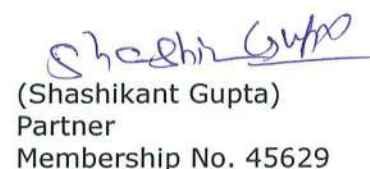 Shashin Gupta
(Shashikant Gupta)
Partner
Membership No. 45629